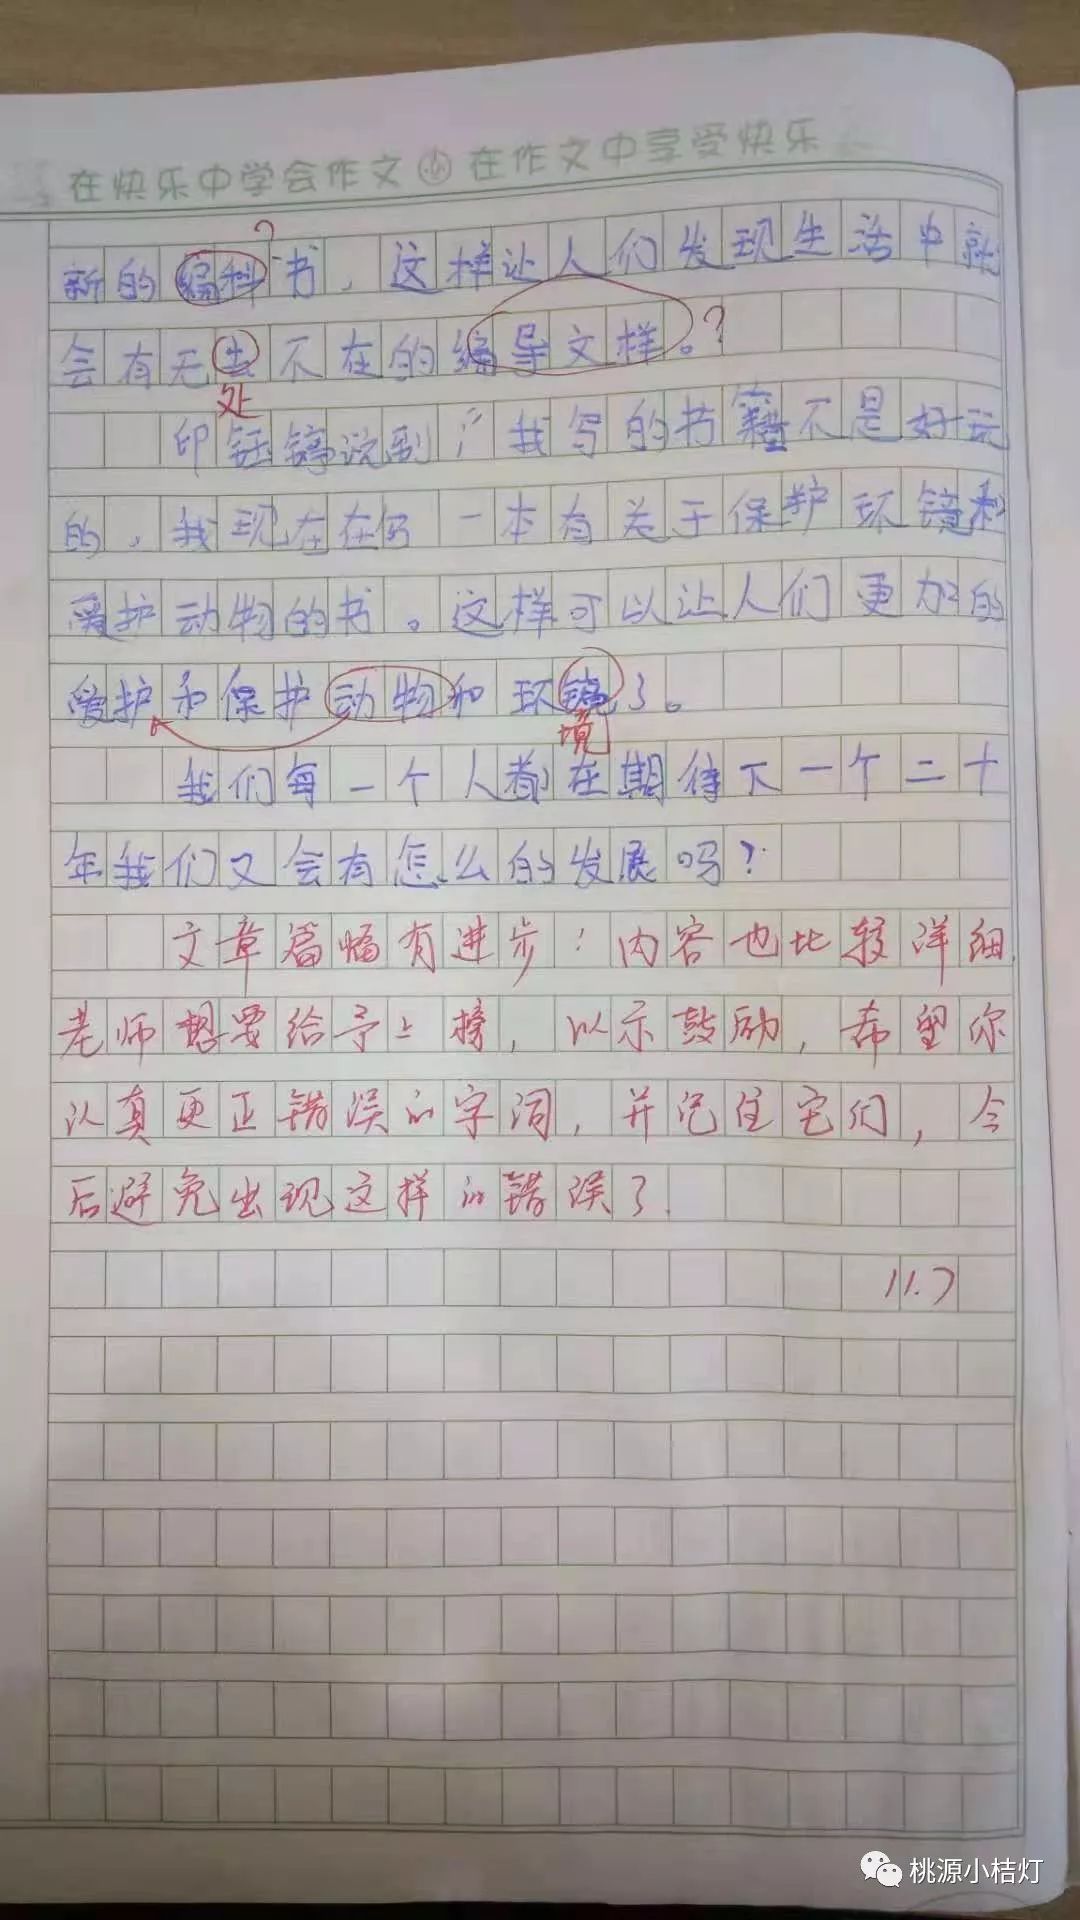 在快乐中学会作文 在作文中享受快乐
?
新的编科书，这样让人们发现生活中就
会有无出不在的编导文样。?
处
印钰镕说到："我写的书籍不是好玩
的，我现在在写一本有关于保护环镜和
爱护动物的书。这样可以让人们更加的
爱护和保护动物和环镜了。
境
我们每一个人都在期待下一个二十
年我们又会有怎么的发展吗?
文章篇幅有进步！内容也比较详细,
老师想要给予上榜，以示鼓励，希望你
认真更正错误的字词，并记住它们，今
后避免出现这样的错误了.
11.7
桃源小桔灯